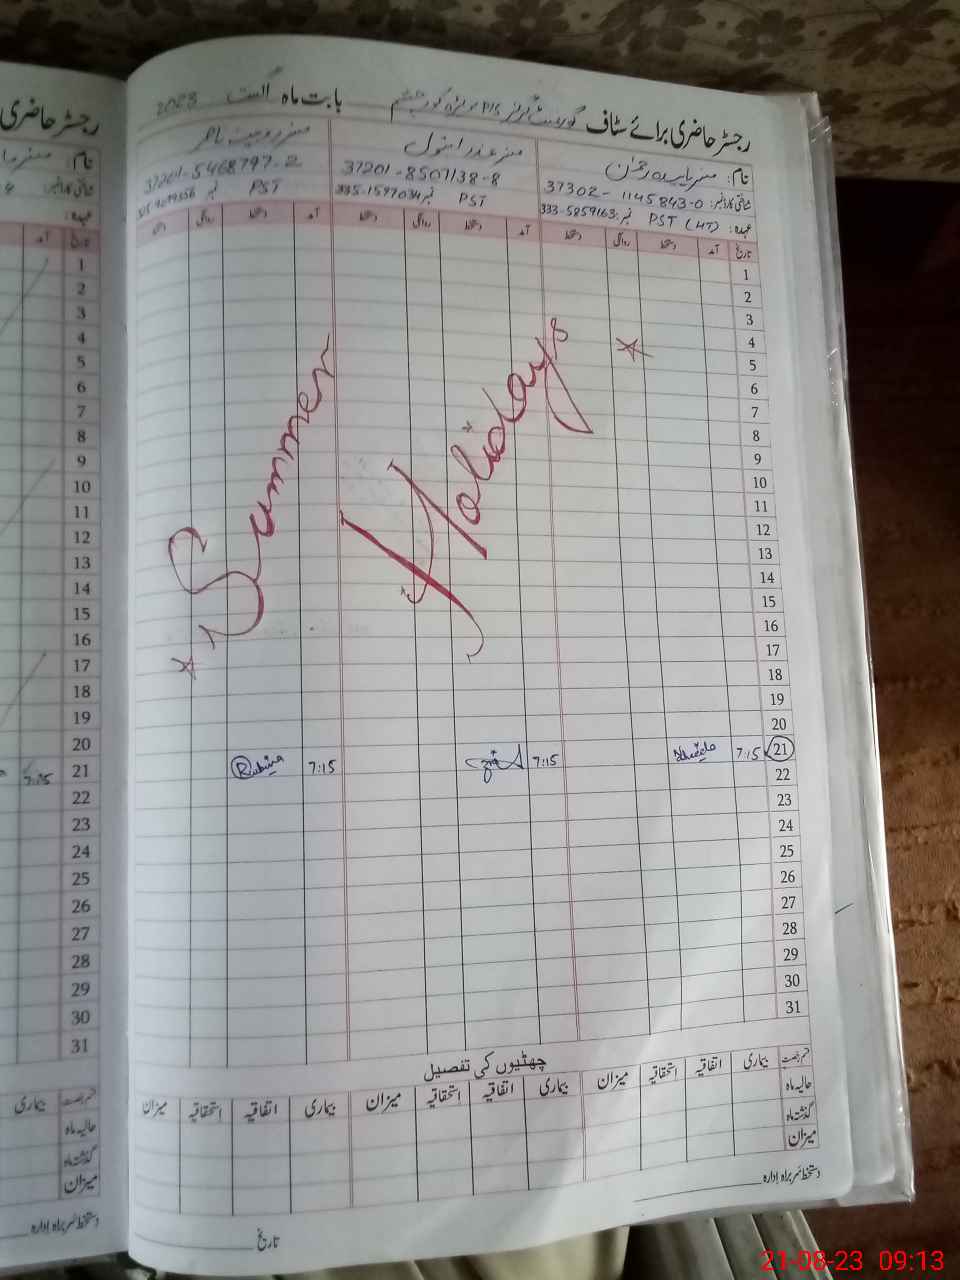 رجسٹر حاضری برائے سٹاف گورنمنٹ گرلز P/S بابت ماہ اگست 2023
نام: مسز
شناختی کارڈ نمبر: 37302-1145843-0
عہدہ: PST (HT) نمبر: 333-5859163
مسز
37201-8507138-8
PST نمبر 335-1597034
مسز
37201-5468797-2
PST نمبر
تاریخ آمد دستخط روانگی دستخط آمد دستخط روانگی دستخط آمد دستخط روانگی دستخط
1
2
3
4
5
6
7
8
9
10
11
12
13
14
15
16
17
18
19
20
21 7:15 7:15 7:15 Rubina
22
23
24
25
26
27
28
29
30
31
Summer
Holidays
چھٹیوں کی تفصیل
قسم رخصت بیماری اتفاقیہ استحقاقیہ میزان بیماری اتفاقیہ استحقاقیہ میزان بیماری اتفاقیہ استحقاقیہ میزان
حالیہ ماہ
گذشتہ ماہ
میزان
دستخط سربراہ ادارہ
تاریخ
رجسٹر حاضری
نام: مسز
شناختی کارڈ نمبر:
عہدہ:
تاریخ آمد
1
2
3
4
5
6
7
8
9
10
11
12
13
14
15
16
17
18
19
20
21 7:15
22
23
24
25
26
27
28
29
30
31
قسم رخصت بیماری
حالیہ ماہ
گذشتہ ماہ
میزان
دستخط سربراہ ادارہ
21-08-23 09:13